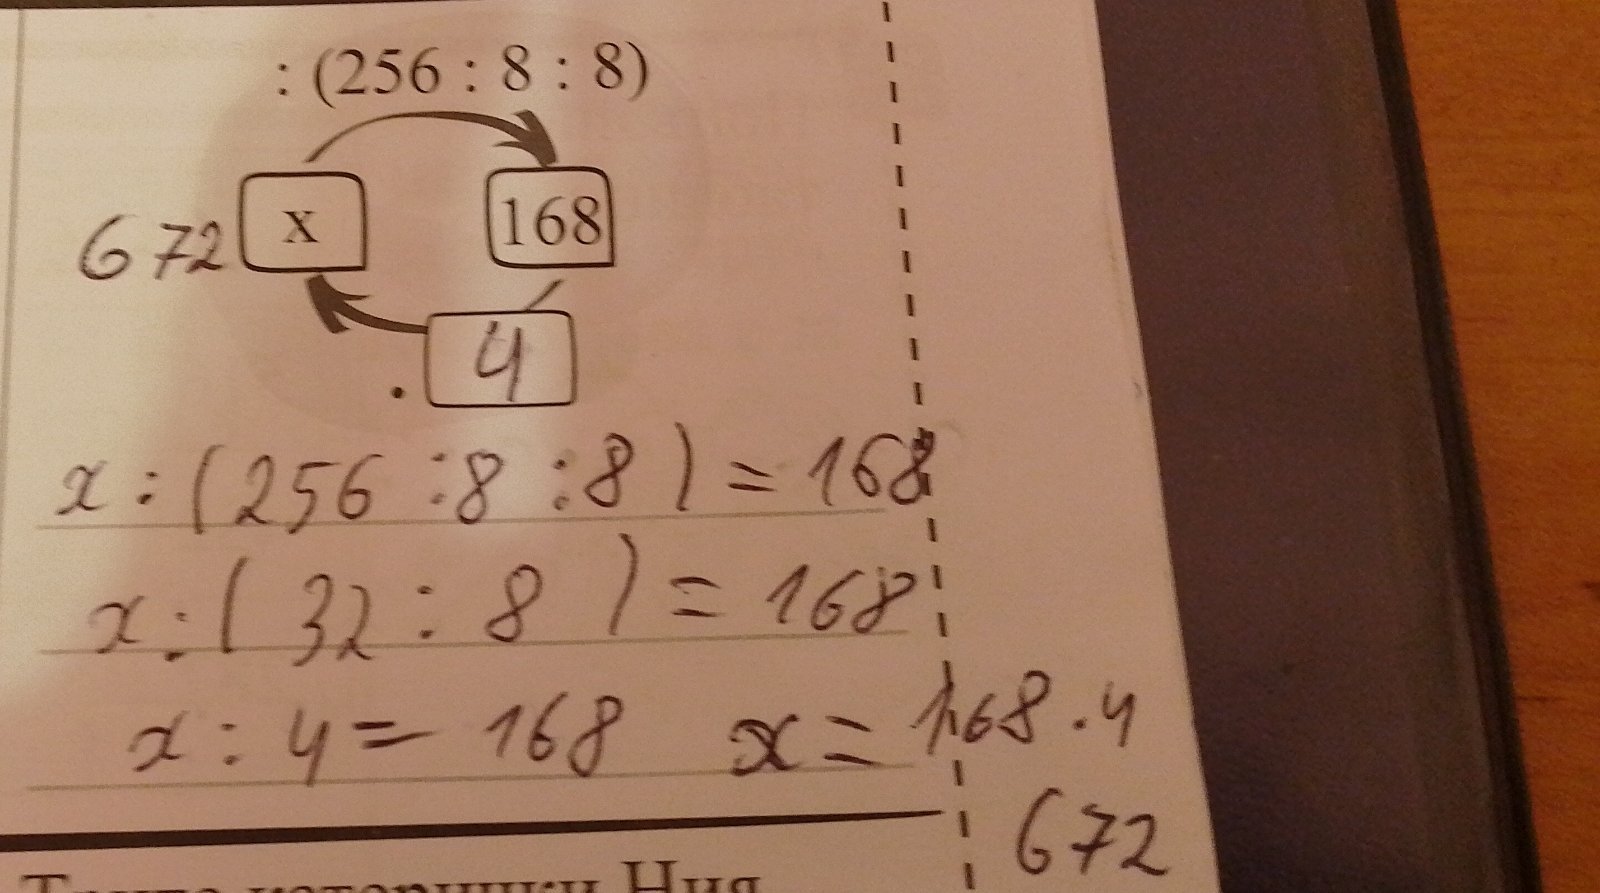 : (256 : 8 : 8)
672 x 168
. 4
x : ( 256 : 8 : 8 ) = 168
x : ( 32 : 8 ) = 168
x : 4 = 168 x = 168 . 4
672